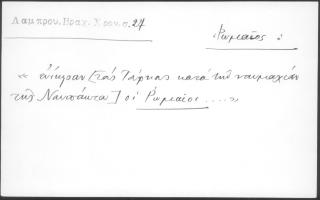 Λάμπρου, Βραχ. Χρον. σ. 27
Ρωμαῖος :
« ἐπῆραν [τὰς Τάρκας κατὰ τὴν ναυμαχίαν
τῆς Ναυπάκτου] οἱ Ρωμαῖοι .... »